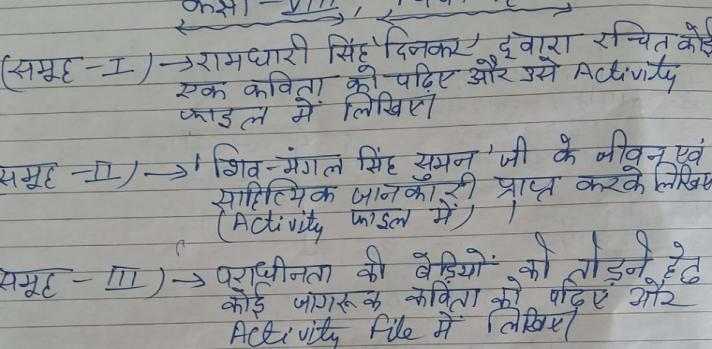 कक्षा - VIII,
(समूह - I) → रामधारी सिंह 'दिनकर' द्वारा रचित कोई
एक कविता को पढ़िए और उसे Activity
फाइल में लिखिए।
समूह - II) → 'शिव-मंगल सिंह सुमन' जी के जीवन एवं
साहित्यिक जानकारी प्राप्त करके लिखिए
(Activity फाइल में) ।
समूह - III) → पराधीनता की बेड़ियों को तोड़ने हेतु
कोई जागरूक कविता को पढ़िए और
Activity File में लिखिए।